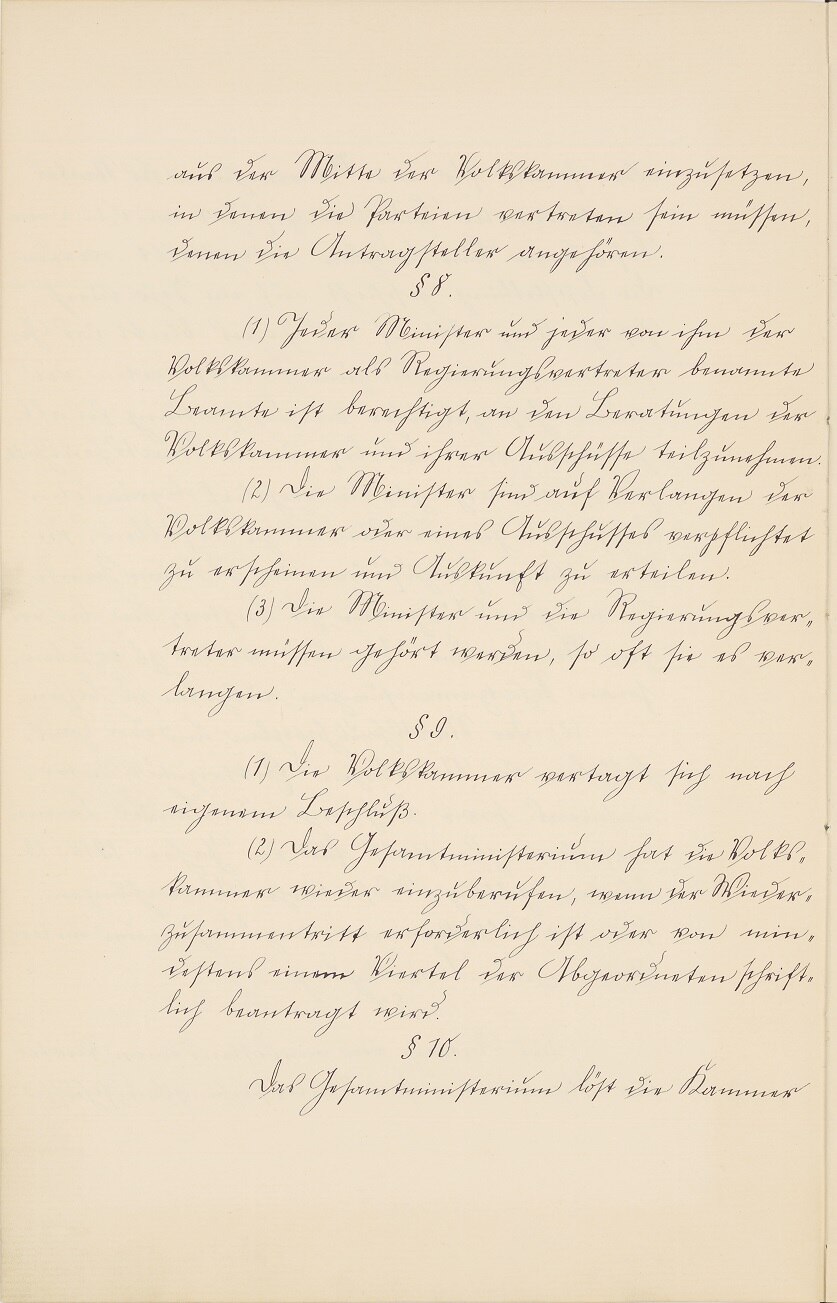 aus der Mitte der Volkskammer einzusetzen,
in denen die Parteien vertreten sein müssen,
denen die Antragsteller angehören.
§ 8.
(1) Jeder Minister und jeder von ihm der
Volkskammer als Regierungsvertreter benannte
Beamte ist berechtigt, an den Beratungen der
Volkskammer und ihrer Ausschüsse teilzunehmen.
(2) Die Minister sind auf Verlangen der
Volkskammer oder eines Ausschusses verpflichtet
zu erscheinen und Auskunft zu erteilen.
(3) Die Minister und die Regierungsver-
treter müssen gehört werden, so oft sie es ver-
langen.
§ 9.
(1) Die Volkskammer vertagt sich nach
eigenem Beschluß.
(2) Das Gesamtministerium hat die Volks-
kammer wieder einzuberufen, wenn der Wieder-
zusammentritt erforderlich ist oder von min-
destens einem Viertel der Abgeordneten schrift-
lich beantragt wird.
§ 10.
Das Gesamtministerium löst die Kammer